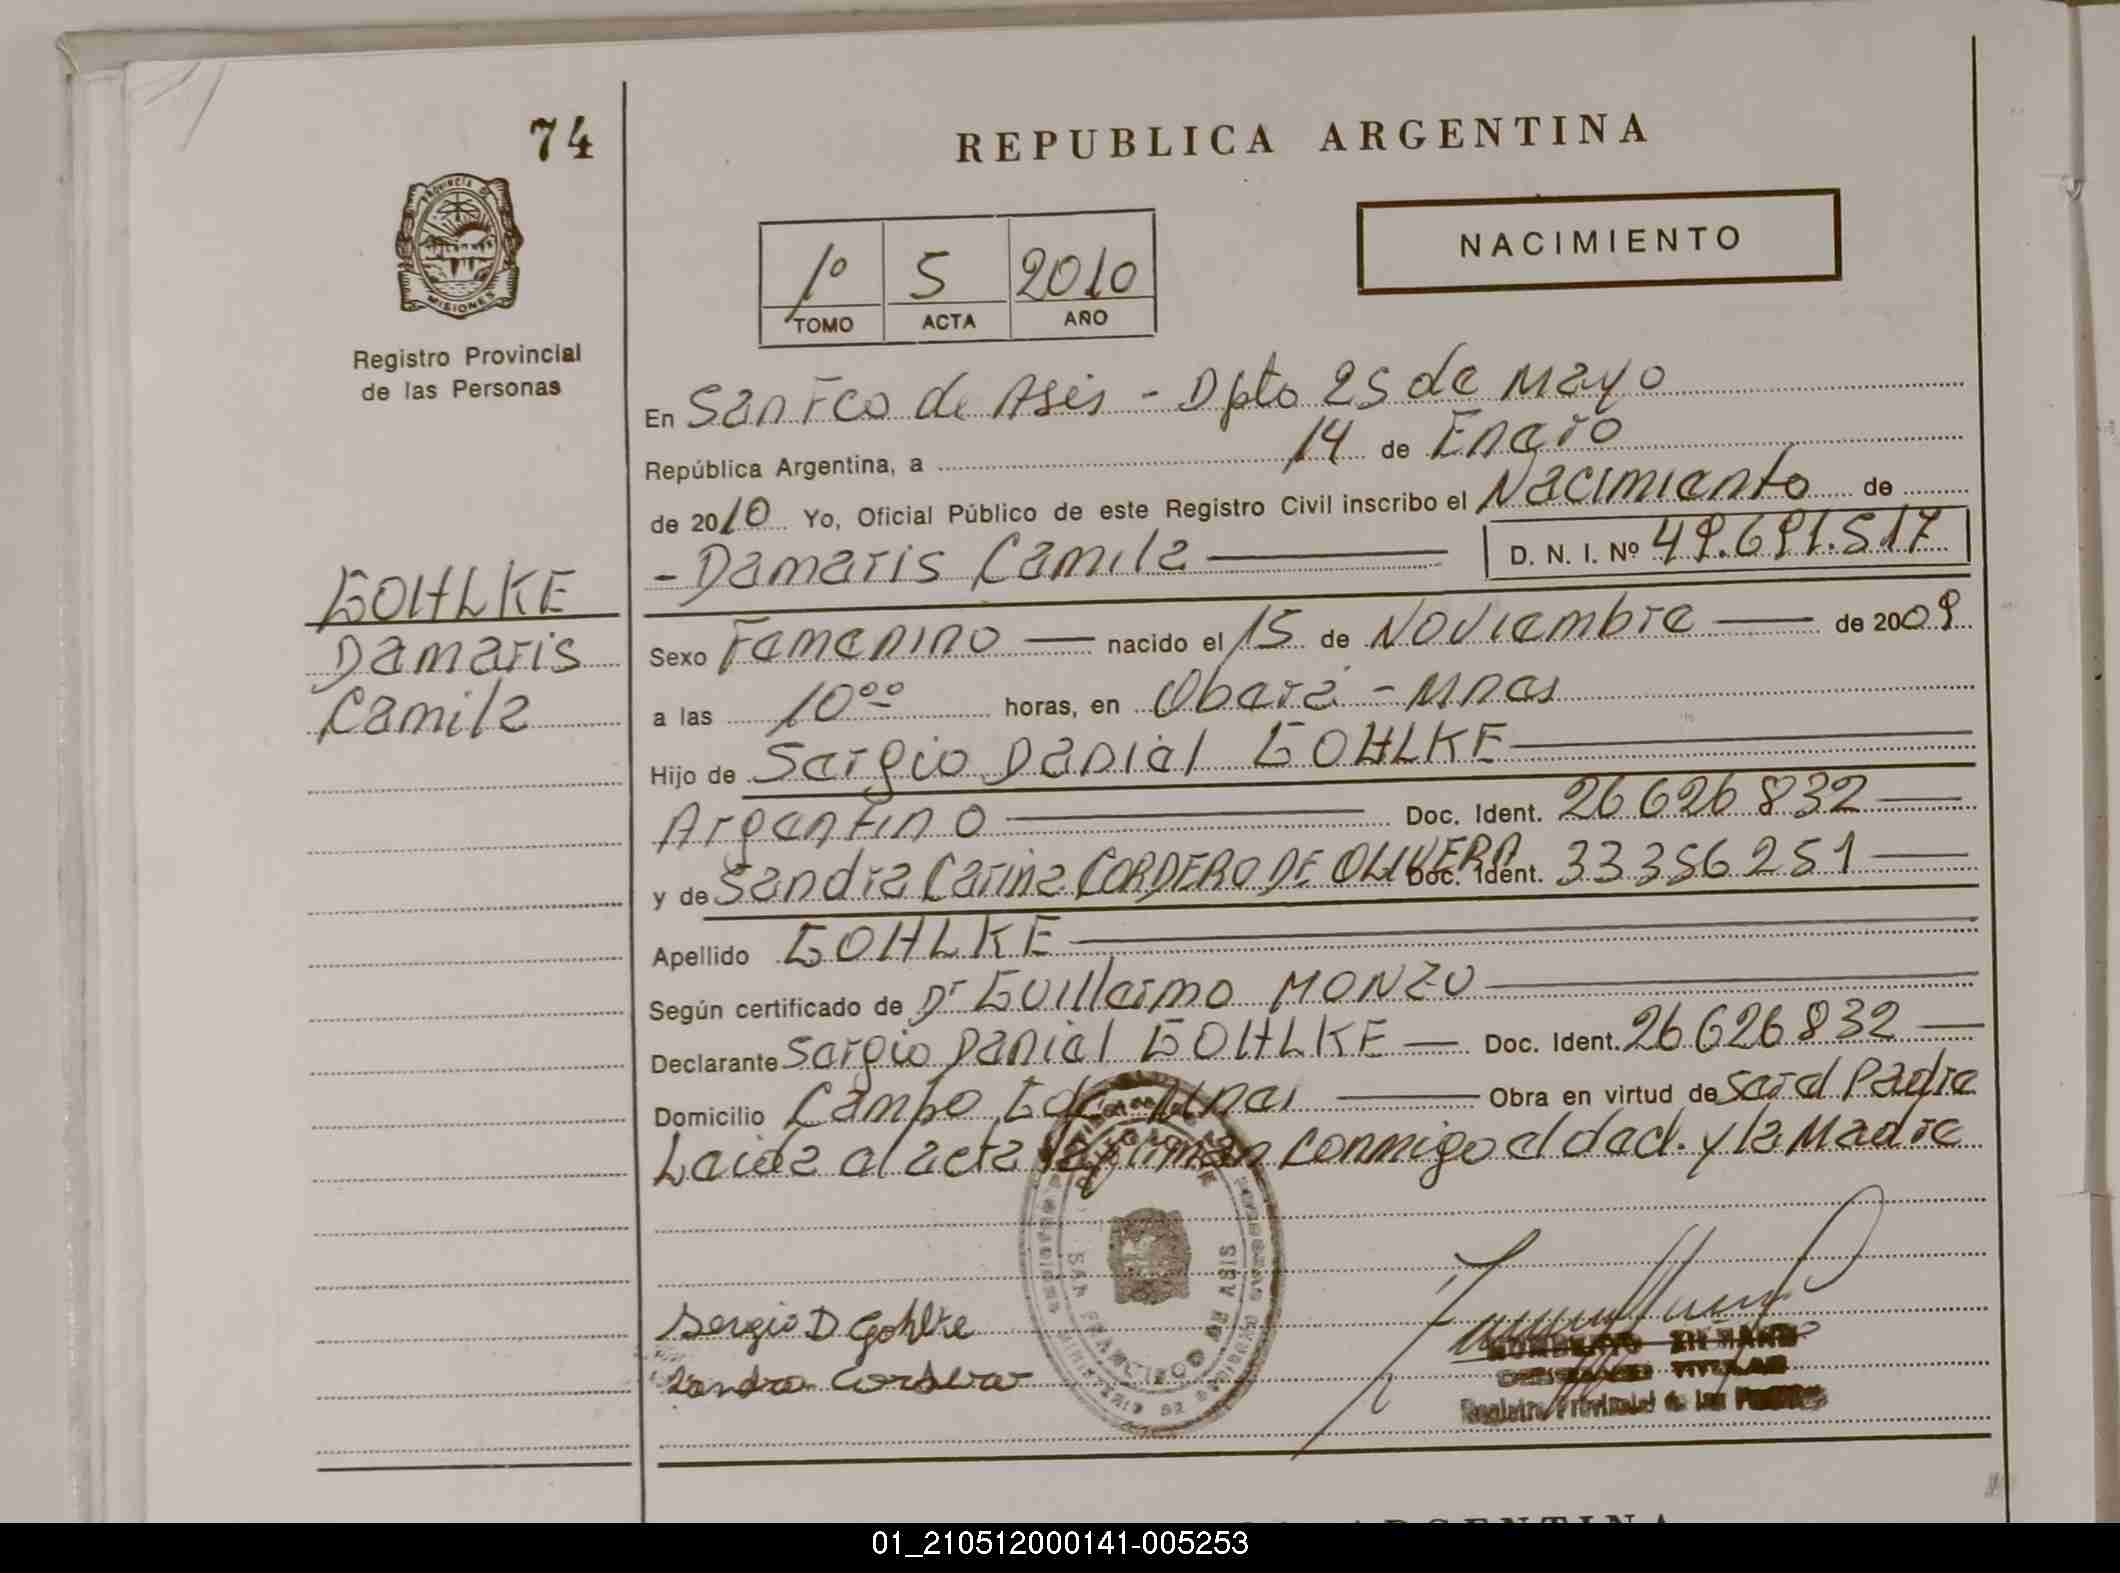 74
REPUBLICA ARGENTINA
PROVINCIA DE
MISIONES
Registro Provincial
de las Personas
NACIMIENTO
1º 5 2010
TOMO ACTA AÑO
En San Fco de Asis - Dpto 25 de Mayo
República Argentina, a 14 de Enero
de 2010 Yo, Oficial Público de este Registro Civil inscribo el Nacimiento de
- Damaris Camila D. N. I. Nº 49.691.517
GOHLKE
Damaris
Camila
Sexo Femenino nacido el 15 de Noviembre de 2009
a las 10 00 horas, en Obera - Mnes
Hijo de Sergio Daniel GOHLKE
Argentino Doc. Ident. 26626832
y de Sandra Carina CORDERO DE OLIVERA Doc. Ident. 33356251
Apellido GOHLKE
Según certificado de Dr Guillermo MONZO
Declarante Sergio Daniel GOHLKE Doc. Ident. 26626832
Domicilio Campo Gde Mnes Obra en virtud de ser el Padre
Leida al acta la firman conmigo el decl. y la Madre
SAN FRANCISCO DE ASIS
Sergio D Gohlke
Sandra Cordero
Registro Provincial de las Personas
ARGENTINA
01_210512000141-005253